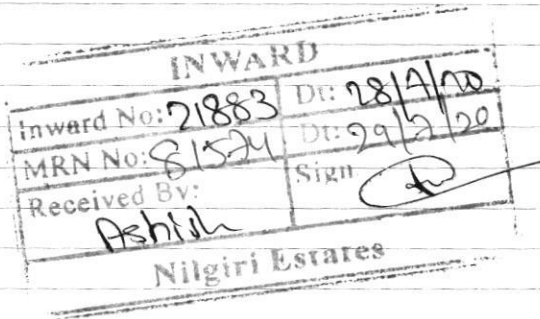 INWARD
Inward No: 21883 Dt: 28/7/20
MRN No: 81524 Dt: 29/7/20
Received By: Sign
Ashish
Nilgiri Estates